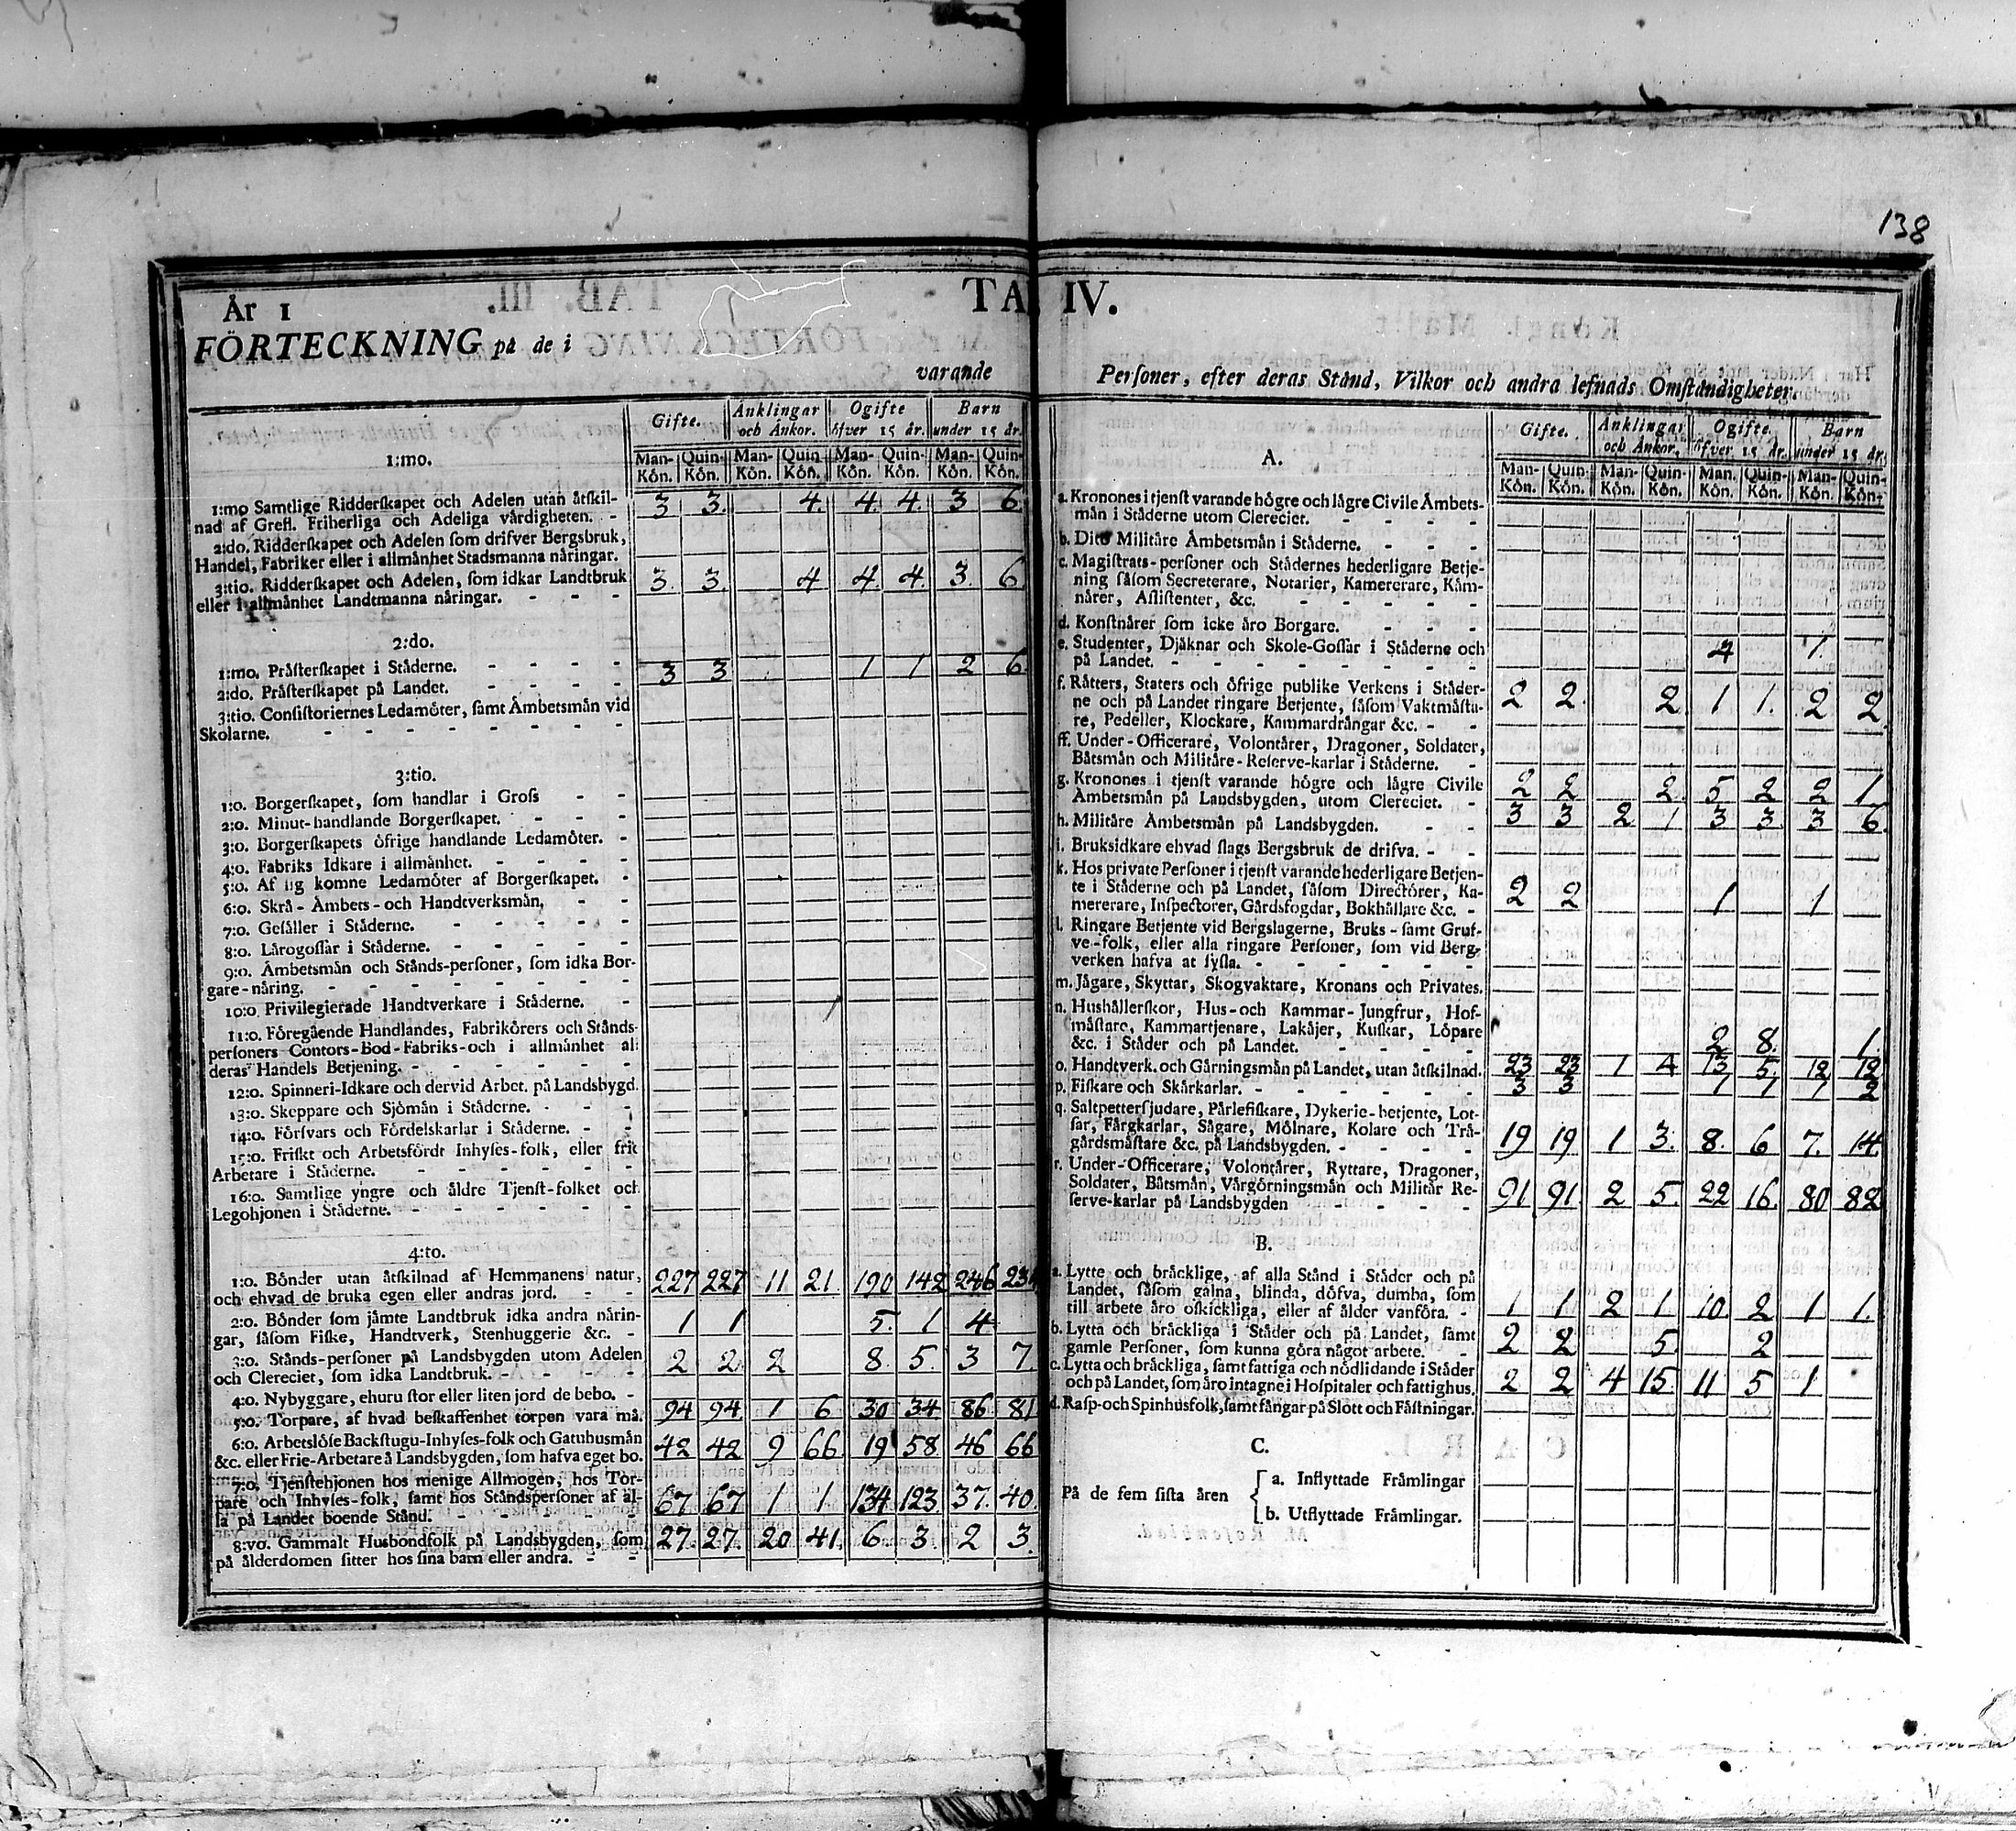 138
År 1
TA IV.
FÖRTECKNING på de i
varande Personer, efter deras Stånd, Vilkor och andra lefnads Omständigheter.
Gifte. Änklingar och Änkor. Ogifte öfver 15 år. Barn under 15 år.
1:mo. Man-Kön. Quin-Kön. Man-Kön. Quin-Kön. Man-Kön. Quin-Kön. Man-Kön. Quin-Kön.
1:mo Samtlige Ridderskapet och Adelen utan åtskil-
nad af Grefl. Friherliga och Adeliga värdigheten. - 3 3. 4. 4. 4. 3 6.
2:do. Ridderskapet och Adelen som drifver Bergsbruk,
Handel, Fabriker eller i allmänhet Stadsmanna näringar.
3:tio. Ridderskapet och Adelen, som idkar Landtbruk 3. 3. 4 4. 4. 3. 6.
eller i allmänhet Landtmanna näringar. - - -
2:do.
1:mo. Prästerskapet i Städerne. - - - - 3 3 1 1 2 6.
2:do. Prästerskapet på Landet. - - - -
3:tio. Consistoriernes Ledamöter, samt Ämbetsmän vid
Skolarne. - - - - - - -
3:tio.
1:o. Borgerskapet, som handlar i Gross - -
2:o. Minut-handlande Borgerskapet. - - -
3:o. Borgerskapets öfrige handlande Ledamöter. -
4:o. Fabriks Idkare i allmänhet. - - - -
5:o. Af sig komne Ledamöter af Borgerskapet. -
6:o. Skrå-Ämbets-och Handtverksmän. - -
7:o. Gesäller i Städerne. - - - - -
8:o. Lärogossar i Städerne. - - - - -
9:o. Ämbetsmän och Stånds-personer, som idka Bor-
gare-näring. - - - - - - -
10:o. Privilegierade Handtverkare i Städerne. -
11:o. Föregående Handlandes, Fabrikörers och Stånds-
personers Contors-Bod-Fabriks-och i allmänhet al-
deras Handels Betjening. - - - - - -
12:o. Spinneri-Idkare och dervid Arbet. på Landsbygd.
13:o. Skeppare och Sjömän i Städerne. - - -
14:o. Försvars och Fördelskarlar i Städerne. - -
15:o. Friskt och Arbetsfördt Inhyses-folk, eller frit
Arbetare i Städerne. - - - - - -
16:o. Samtlige yngre och äldre Tjenst-folket och
Legohjonen i Städerne. - - - - - -
4:to.
1:o. Bönder utan åtskilnad af Hemmanens natur, 227 227 11 21. 190 142 246
och ehvad de bruka egen eller andras jord. - -
2:o. Bönder som jämte Landtbruk idka andra närin- 1 1 5. 1 4
gar, såsom Fiske, Handtverk, Stenhuggerie &c. -
3:o. Stånds-personer på Landsbygden utom Adelen 2 2 2 8. 5. 3 7.
och Clereciet, som idka Landtbruk. - - - -
4:o. Nybyggare, ehuru stor eller liten jord de bebo. -
5:o. Torpare, af hvad beskaffenhet torpen vara må. 94 94 1 6 30 34 86 81
6:o. Arbetslöse Backstugu-Inhyses-folk och Gatuhusmän 42 42 9 66 19 58 46 66
&c. eller Frie-Arbetare å Landsbygden, som hafva eget bo.
7:o. Tjenstehjonen hos menige Allmogen, hos Tor-
pare och Inhyses-folk, samt hos Ståndspersoner af al- 67 67 1 1 134 123. 37. 40.
la på Landet boende Stånd. - - - - -
8:vo. Gammalt Husbondfolk på Landsbygden, som 27 27. 20 41. 6 3 2 3.
på ålderdomen sitter hos sina barn eller andra. - -
Gifte. Änklingar och Änkor. Ogifte öfver 15 år. Barn under 15 år.
A. Man-Kön. Quin-Kön. Man-Kön. Quin-Kön. Man. Kön. Quin-Kön. Man-Kön. Quin-Kön.
a. Kronones i tjenst varande högre och lägre Civile Ämbets-
män i Städerne utom Clereciet. - - - -
b. Dito Militäre Ämbetsmän i Städerne. - - -
c. Magistrats-personer och Städernes hederligare Betje-
ning såsom Secreterare, Notarier, Kamererare, Käm-
närer, Assistenter, &c. - - - - -
d. Konstnärer som icke äro Borgare. - - -
e. Studenter, Djäknar och Skole-Gossar i Städerne och
på Landet. - - - - - - - 4 1
f. Rätters, Staters och öfrige publike Verkens i Städer-
ne och på Landet ringare Betjente, såsom Vaktmästa- 2 2. 2. 1 1. 2 2.
re, Pedeller, Klockare, Kammardrängar &c. - -
ff. Under-Officerare, Volontärer, Dragoner, Soldater,
Båtsmän och Militäre-Reserve-karlar i Städerne. -
g. Kronones i tjenst varande högre och lägre Civile 2 2 2. 5 2 2 1
Ämbetsmän på Landsbygden, utom Clereciet. -
h. Militäre Ämbetsmän på Landsbygden. - - 3 3 2 1 3 3 3 6.
i. Bruksidkare ehvad slags Bergsbruk de drifva. - -
k. Hos private Personer i tjenst varande hederligare Betjen-
te i Städerne och på Landet, såsom Directörer, Ka- 2 2 1 1
mererare, Inspectorer, Gårdsfogdar, Bokhållare &c. -
l. Ringare Betjente vid Bergslagerne, Bruks-samt Gruf-
ve-folk, eller alla ringare Personer, som vid Berg-
verken hafva at syssla. - - - - - -
m. Jägare, Skyttar, Skogvaktare, Kronans och Privates.
n. Hushållerskor, Hus-och Kammar-Jungfrur, Hof-
mästare, Kammartjenare, Lakäjer, Kuskar, Löpare
&c. i Städer och på Landet. - - - - 2 8. 1.
o. Handtverk. och Gärningsmän på Landet, utan åtskilnad. 23 23 1 4 13 5. 12 12
p. Fiskare och Skärkarlar. - - - - - 3 3 1 1 1 2
q. Saltpettersjudare, Pärlefiskare, Dykerie-betjente, Lot-
sar, Färgkarlar, Sågare, Mölnare, Kolare och Trä- 19 19 1 3. 8. 6 7. 14.
gårdsmästare &c. på Landsbygden. - - - -
r. Under-Officerare, Volontärer, Ryttare, Dragoner,
Soldater, Båtsmän, Vårgörningsmän och Militär Re- 91 91. 2 5. 22 16. 80 82
serve-karlar på Landsbygden - - - -
B.
a. Lytte och bräcklige, af alla Stånd i Städer och på
Landet, såsom galna, blinda, döfva, dumba, som
till arbete äro oskickliga, eller af ålder vanföra. - 1 1 2 1 10 2 1 1.
b. Lytta och bräckliga i Städer och på Landet, samt 2 2 5. 2
gamle Personer, som kunna göra något arbete. -
c. Lytta och bräckliga, samt fattiga och nödlidande i Städer 2 2 4 15. 11 5 1
och på Landet, som äro intagne i Hospitaler och fattighus.
d. Rasp-och Spinhusfolk, samt fångar på Slott och Fästningar.
C.
På de fem sista åren
a. Inflyttade Främlingar
b. Utflyttade Främlingar.